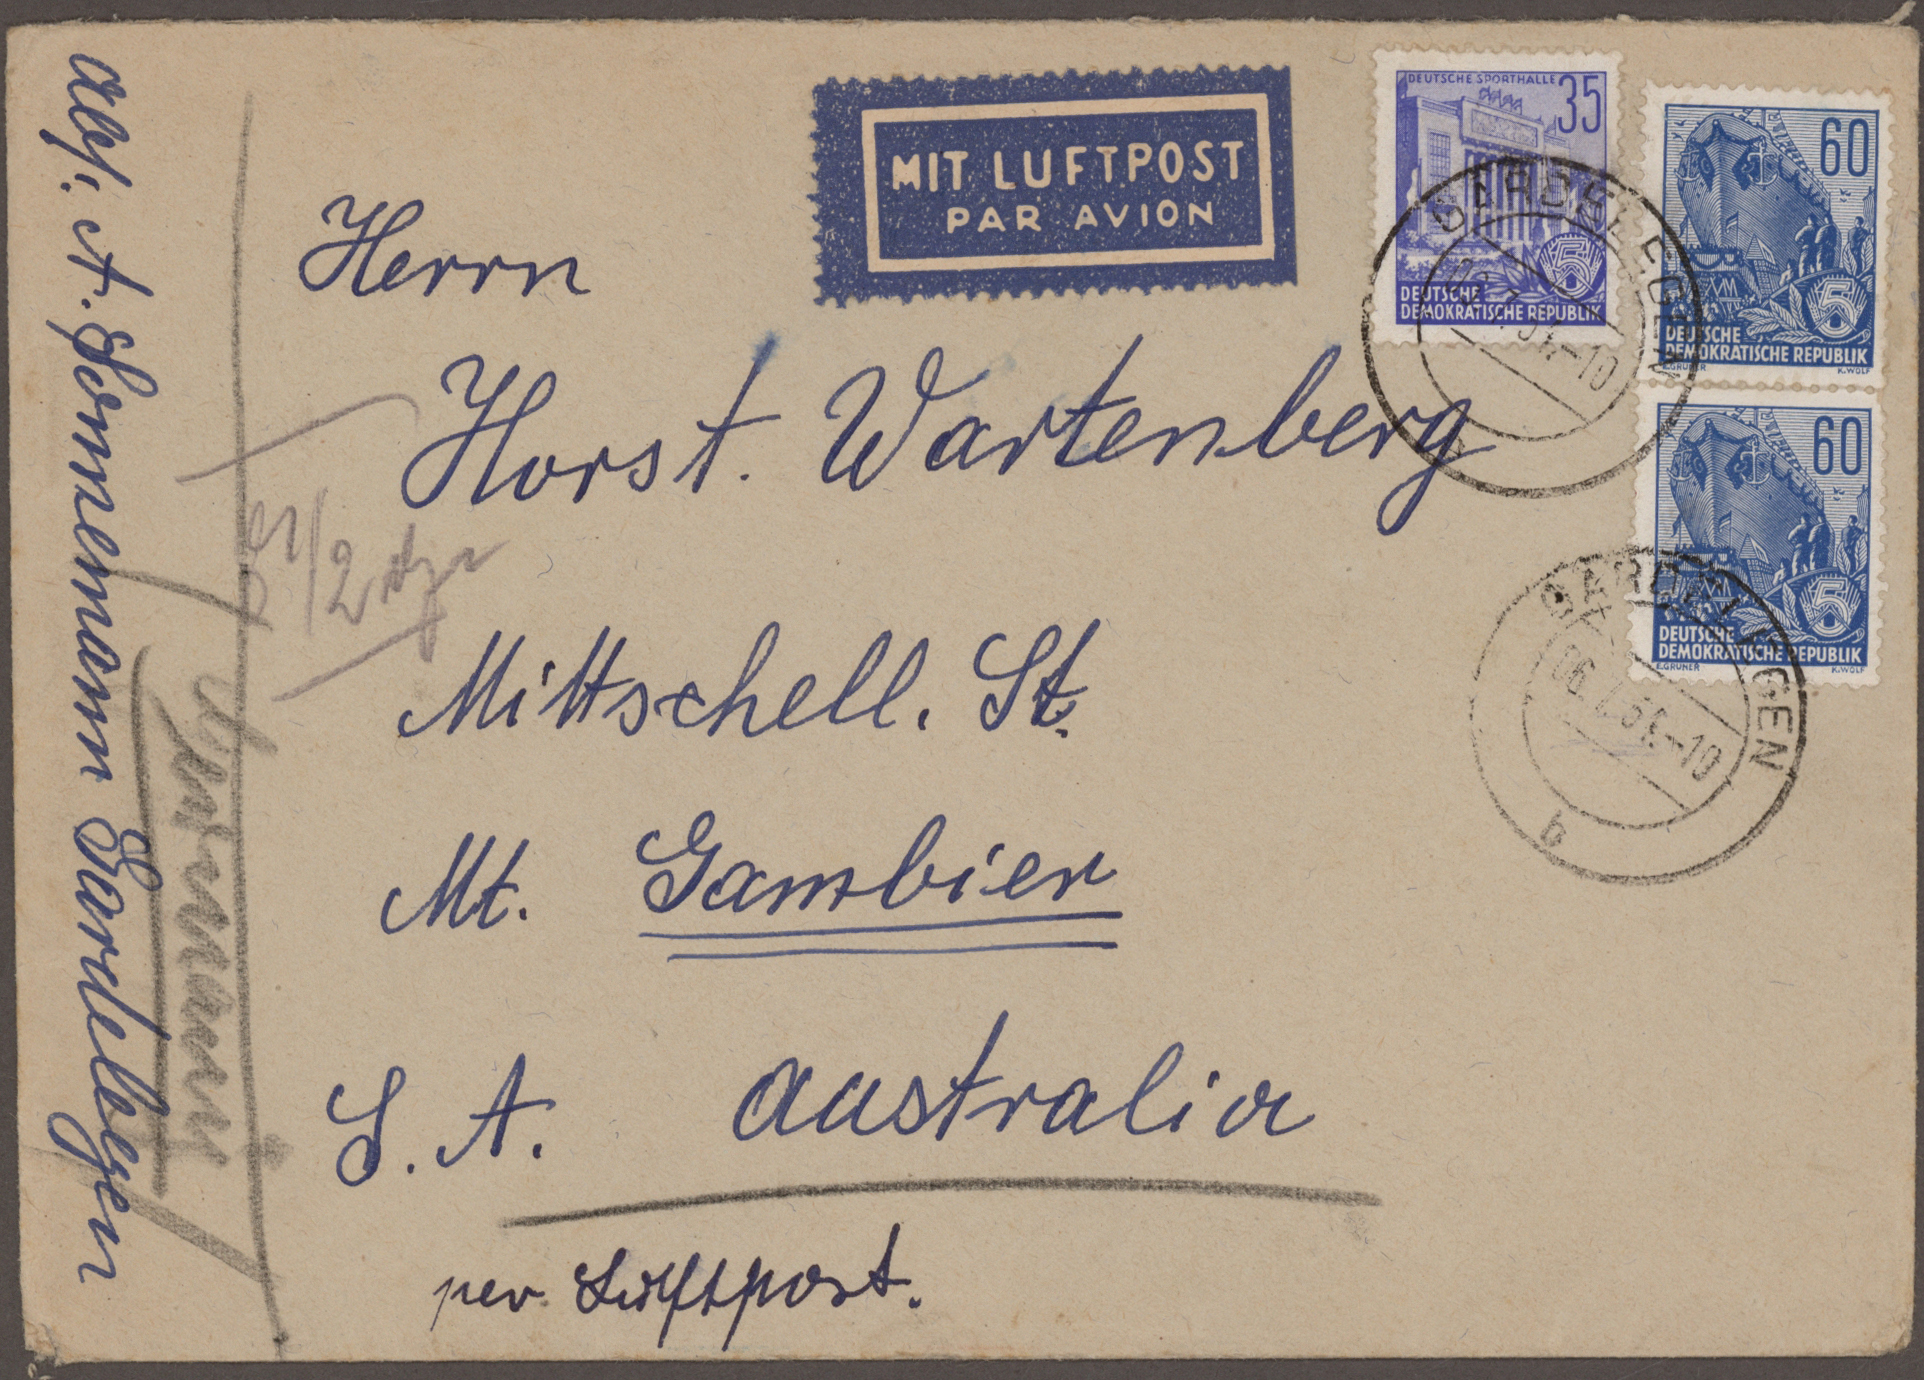 MIT LUFTPOST
PAR AVION
DEUTSCHE SPORTHALLE 35
DEUTSCHE
DEMOKRATISCHE REPUBLIK
60
DEUTSCHE
DEMOKRATISCHE REPUBLIK
E.GRUNER K.WOLF
60
DEUTSCHE
DEMOKRATISCHE REPUBLIK
E.GRUNER K.WOLF
GARDELEGEN
-10
GARDELEGEN
06. -10
b
Herrn
Horst. Wartenberg
Mittschell. St.
Mt. Gambier
S. A. Australia
per Luftpost.
A. Gardelegen